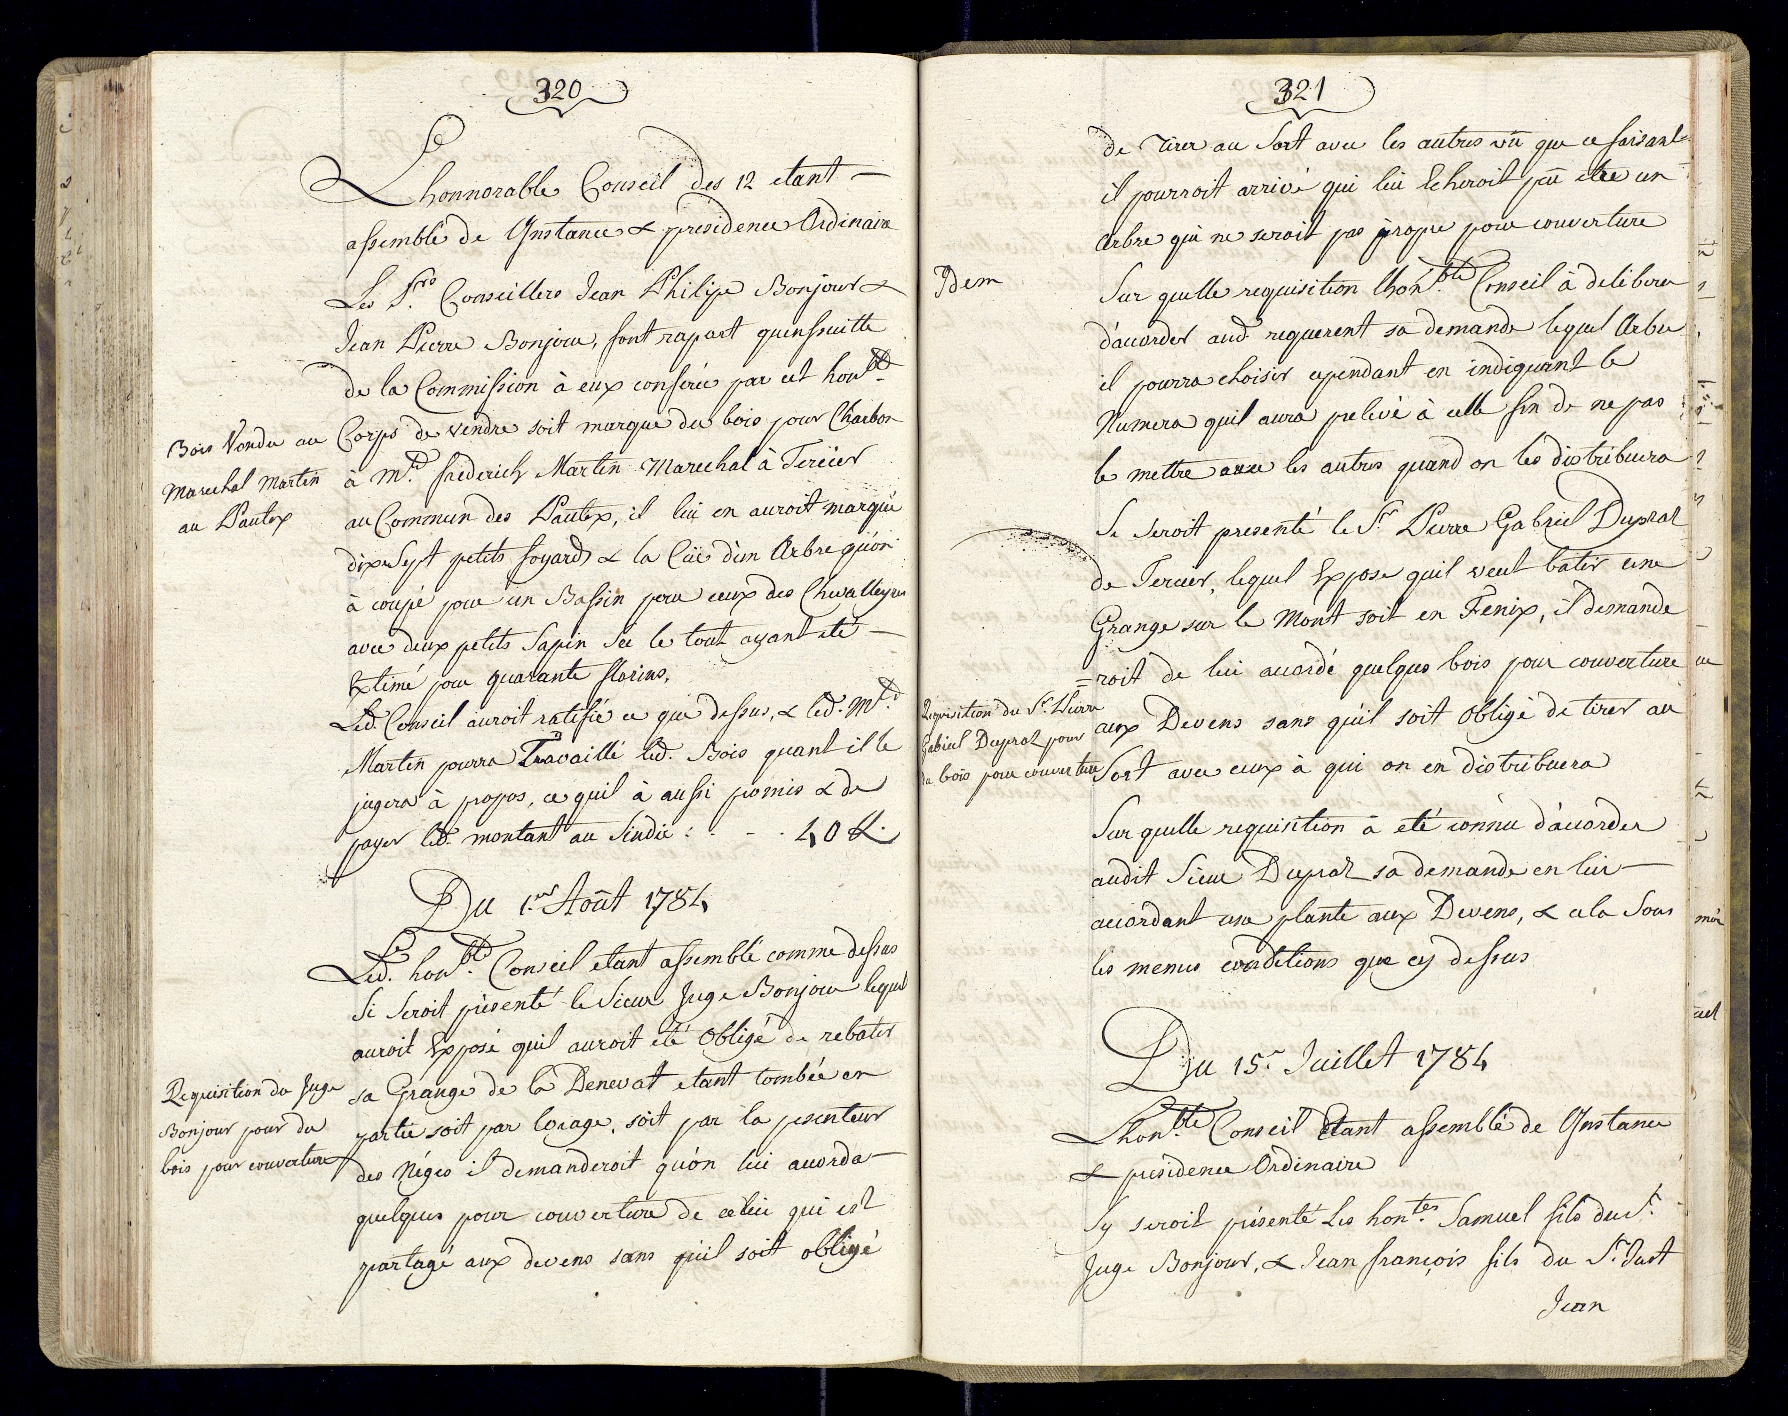 320
L'honnorable Conseil des 12 etant
assemblé de Instance & presidence Ordinaire
Les Srs Conseillers Jean Philipe Bonjour &
Jean Pierre Bonjour, font raport quensuitte
de la Commission à eux conferée par cet honble
Bois Vendu au
Marechal Martin
au Pautex
Corps de vendre soit marque du bois pour Charbon
à Mre. frederich Martin Marechal à Tercier
au Commun des Pautex, il lui en auroit marqué
dix Sept petits foyards & la Cuë d'un Arbre qu'on
à coupé pour un Bassin pour ceux des Chevalleyres
avec deux petits Sapin Sec le tout ayant eté
Extimé pour quarante florins,
Led. Conseil auroit ratifié ce que dessus, & led. Mre.
Martin pourra Travaillé led. Bois quant il le
jugera à propos, ce quil à aussi promis & de
payer led. montant au Sindic : . - . 40 fl.
Du 1er Août 1784
Led. honble. Conseil etant assemblé comme dessus
Se Seroit présenté le Sieur Juge Bonjour lequel
auroit Exposé quil auroit été Obligé de rebatir
Requisition du Juge
Bonjour pour du
bois pour couverture
sa Grange de la Denevat etant tombée en
partie soit par lorage, soit par la pesenteur
des Néges il demanderoit qu'on lui acorda
quelques pour couverture de celui qui est
partagé aux devens sans quil soit obligé
321
de tirer au Sort avec les autres vû que ce faisant
il pourroit arrivé qui lui Echeroit peû etre un
Arbre qui ne seroit pas propre pour couverture
Idem
Sur quelle requisition lhonble Conseil à deliberer
d'acorder aud. requerent sa demande lequel Arbre
il pourra choisir cependant en indiquant le
Numera quil aura prelevé à celle fin de ne pas
le mettre avec les autres quand on les distribuera
Se Seroit presenté le Sr Pierre Gabriel Dupraz
de Tercier, lequel Expose quil veut batir une
Grange sur le Mont soit en Fenix, il demande
=roit de lui acordé quelques bois pour couverture
Requisition du Sr. Pierre
Gabriel Dupraz pour
du bois pour couverture
aux Devens sans quil soit Obligé de tirer au
Sort avec ceux à qui on en distribuera
Sur quelle requisition à eté connu d'acorder
audit Sieur Dupraz sa demande en lui
acordant une plante aux Devens, & cela Sous
les memes conditions que cy dessus
Du 15e Juillet 1784
Lhonble Conseil Etant assemblé de Instance
& presidence Ordinaire
Sy seroit présenté Les hontes Samuel fils du Sr.
Juge Bonjour, & Jean françois fils du Sr. Just
Jean